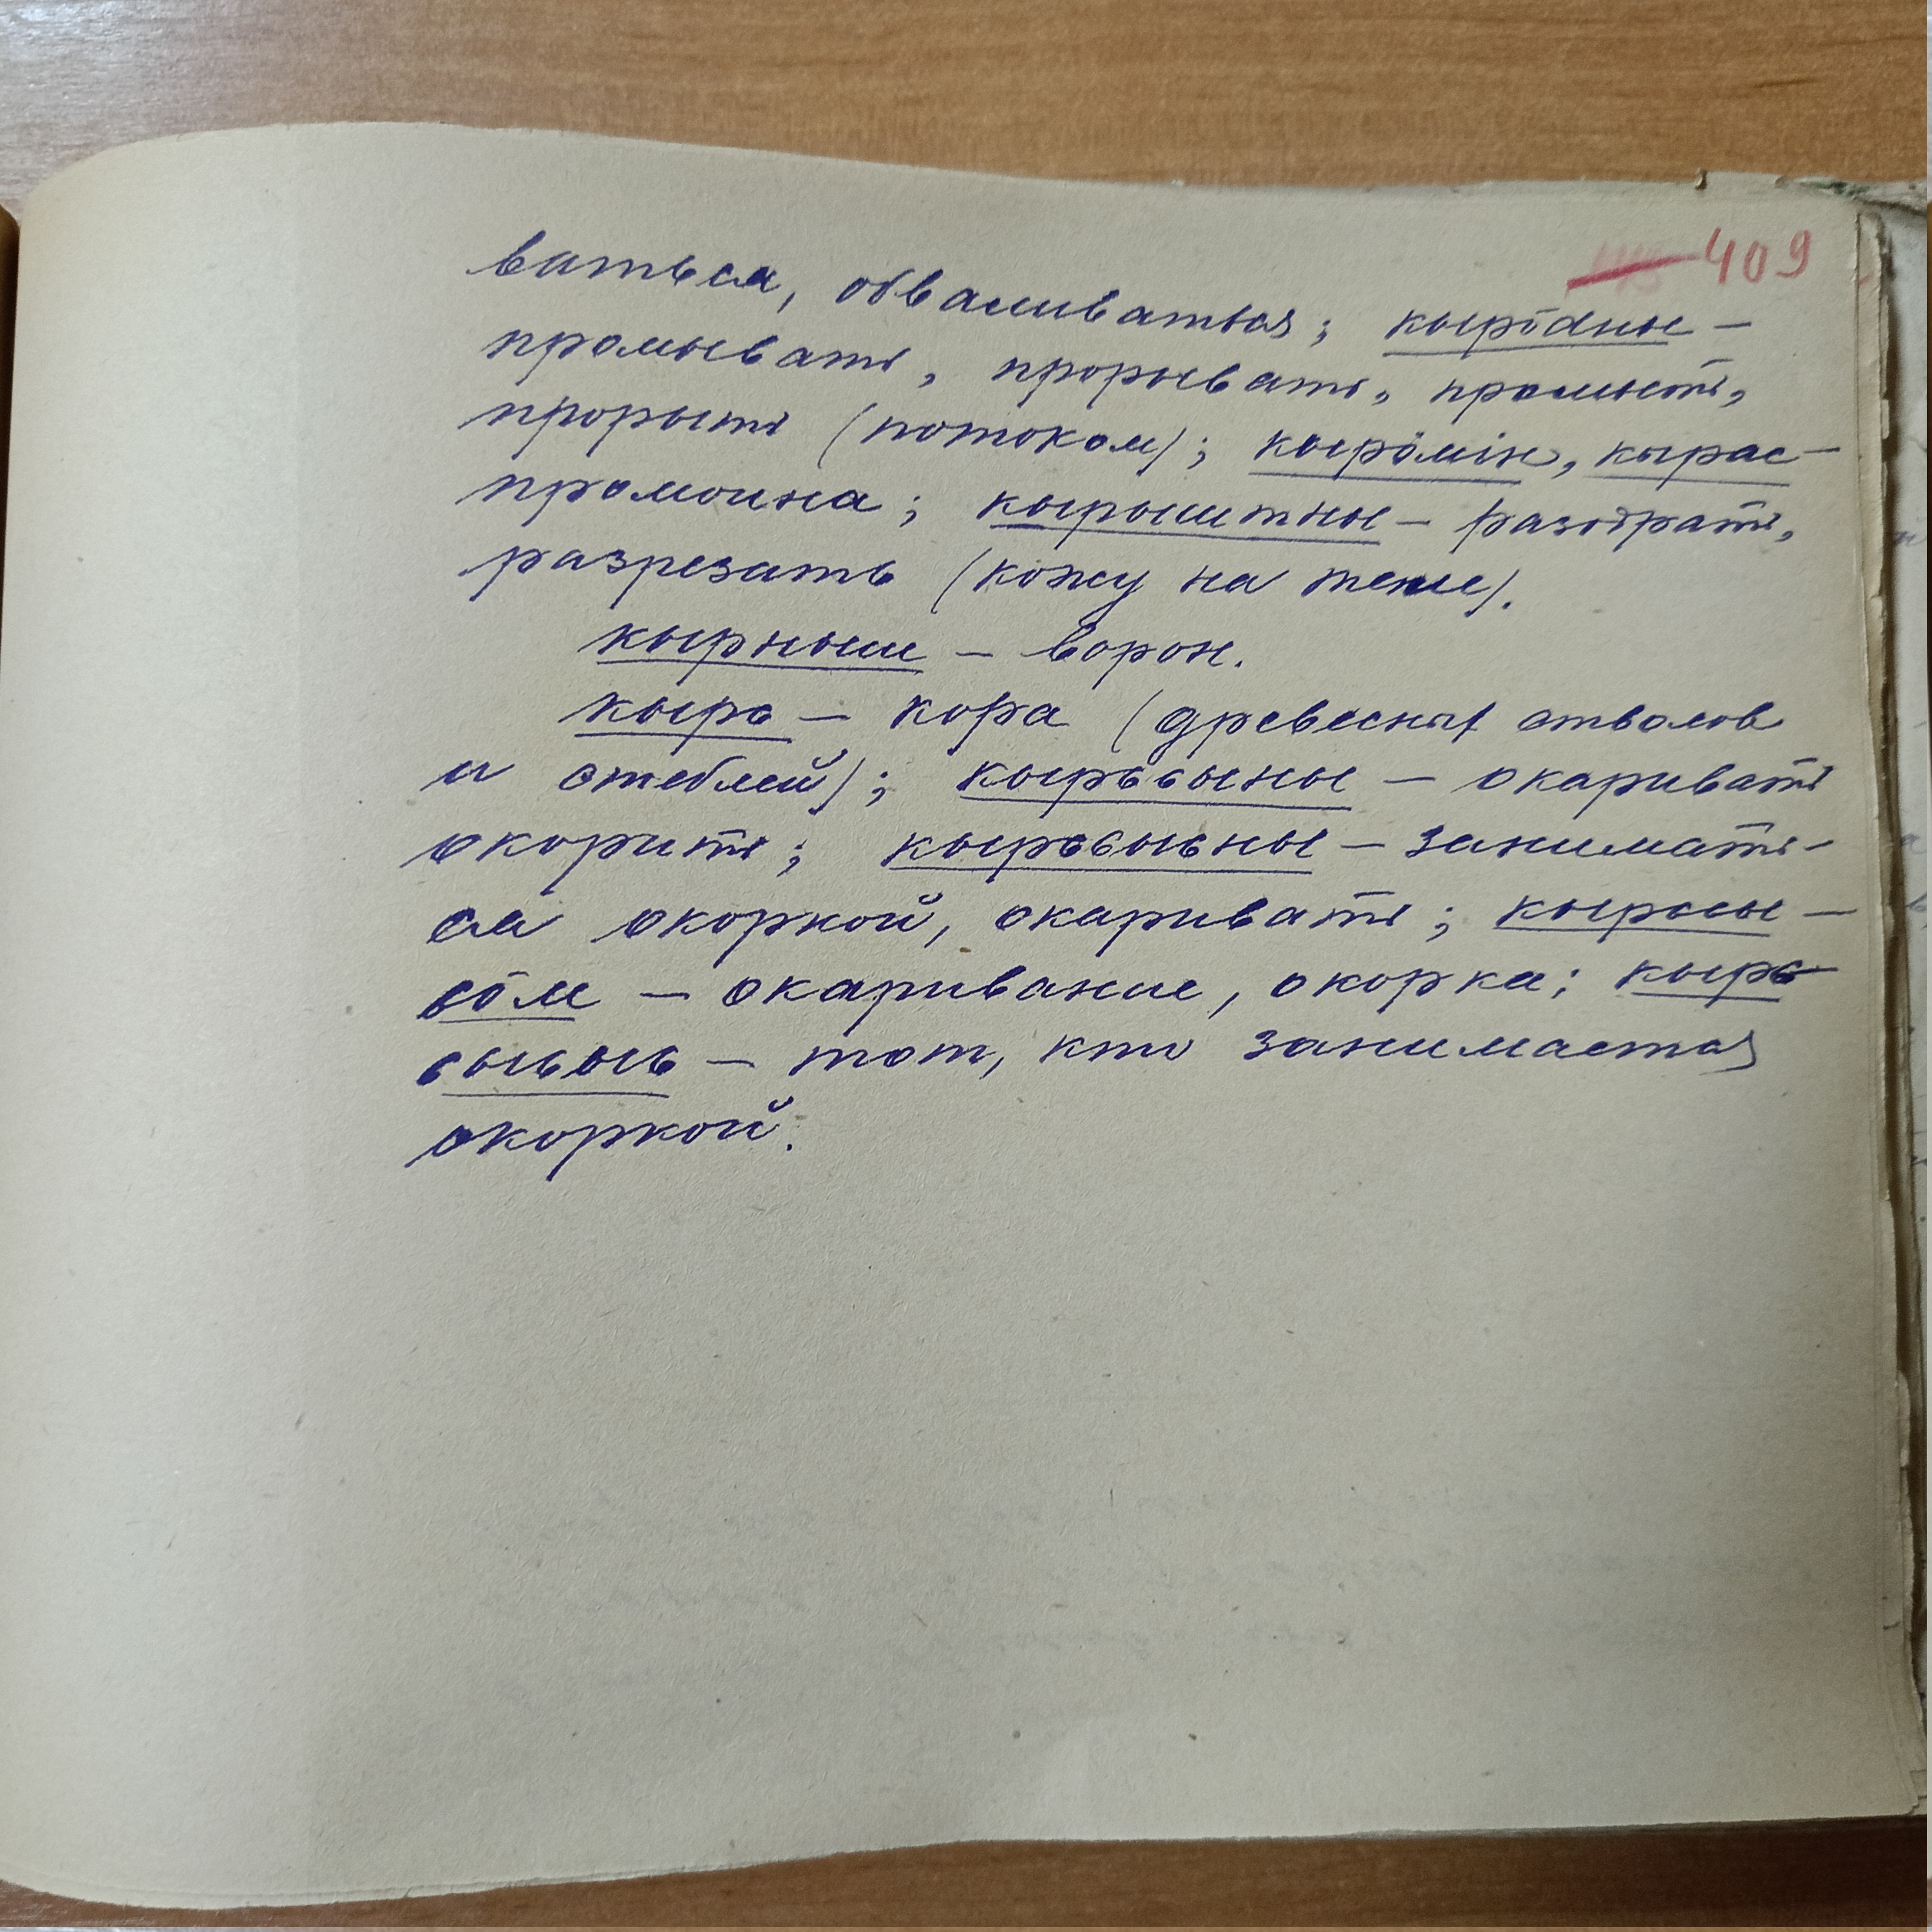 409
ваться, обваливаться; кырӧдны –
промывать, прорывать, промыть,
прорыть (потоком); кырӧмін, кырас –
промоина; кырыштны – разодрать,
разрезать (кожу на теле).
кырныш – ворон.
кырсь – кора (древесных стволов
и стеблей); кырссьыны – окаривать
окорить; кырсьысьны – занимать-
ся окоркой, окаривать; кырсьы-
сьӧм – окаривание, окорка; кырсь-
сысьысь – тот, кто занимается
окоркой.